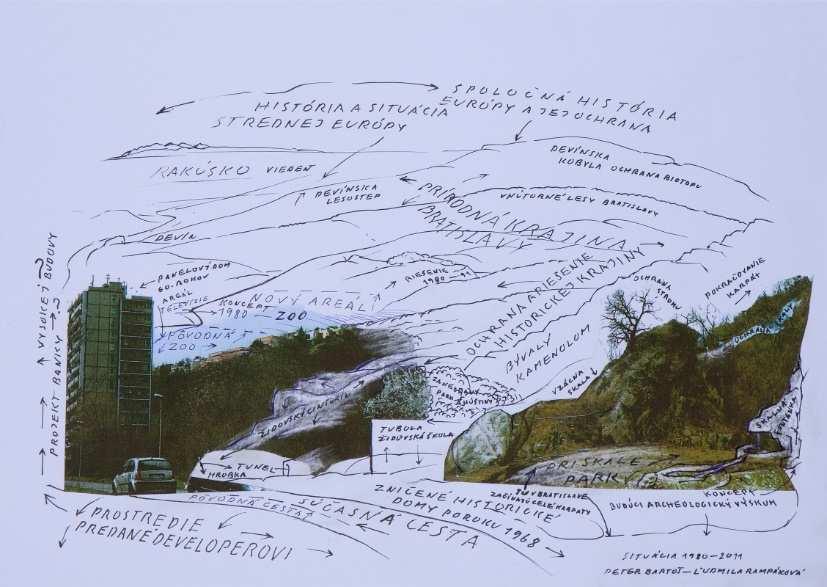 SPOLOČNÁ HISTÓRIA
EURÓPY A JEJ OCHRANA
HISTÓRIA A SITUÁCIA
STREDNEJ EURÓPY
DEVÍNSKA
KOBYLA OCHRANA BIOTOPU
RAKÚSKO VIEDEŇ
DEVÍNSKA
LESOSTEP
PRÍRODNÁ KRAJINA
BRATISLAVY
VNÚTORNÉ LESY BRATISLAVY
DEVÍN
PROJEKT BANKY → VYSOKEJ BUDOVY
PANELOVÝ DOM
60. ROKOV
AREÁL
TELEVÍZIE
RIEŠENIE
1980 - 91
NOVÝ AREÁL
KONCEPT
1980 - ZOO
PÔVODNÁ
ZOO
OCHRANA A RIESENIE
HISTORICKEJ KRAJINY
BÝVALÝ
KAMEŇOLOM
OCHRANA
STROMU
POKRAČOVANIE
KARPÁT
OCHRANA SKALY
VZÁCNA
SKALA
ŽIDOVSKÝ CINTORÍN
TUNEL
HROBKA
TUBOLA
ŽIDOVSKÁ ŠKOLA
PRI SKALE
PARKY
TU V BRATISLAVE
ZAČÍNAJÚ CELÉ KARPATY
KONCEPT
BUDÚCI ARCHEOLOGICKÝ VÝSKUM
PÔVODNÁ CESTA
SÚČASNÁ CESTA
ZNIČENÉ HISTORICKÉ
DOMY PO ROKU 1968
PROSTREDIE
PREDANÉ DEVELOPEROVI
SITUÁCIA 1980-2011
PETER BARTOŠ - ĽUDMILA RAMPÁKOVÁ